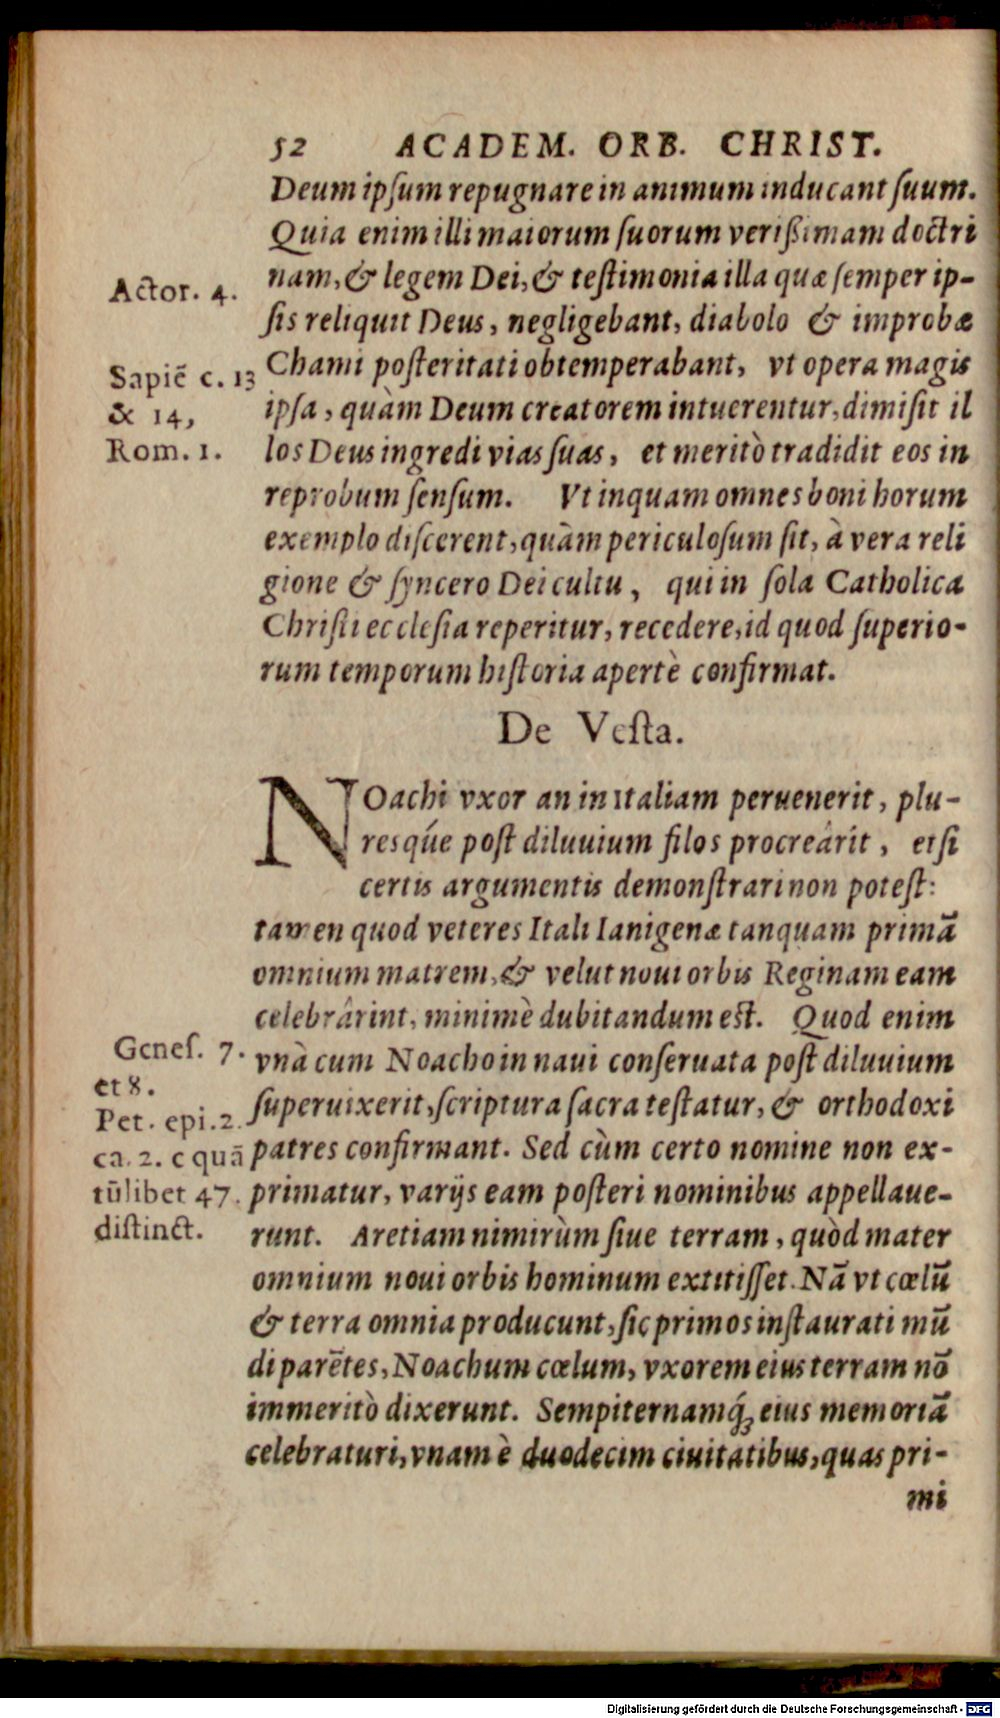 52 ACADEM. ORB. CHRIST.
Deum ipſum repugnare in animum inducant ſuum.
Quia enim illi maiorum ſuorum verißimam doctri
nam, & legem Dei, & teſtimonia illa quæ ſemper ip-
ſis reliquit Deus, negligebant, diabolo & improbæ
Chami poſteritati obtemperabant, vt opera magis
ipſa, quàm Deum creatorem intuerentur, dimiſit il
los Deus ingredi vias ſuas, et meritò tradidit eos in
reprobum ſenſum. Vt inquam omnes boni horum
exemplo diſcerent, quàm periculoſum ſit, à vera reli
gione & ſyncero Dei cultu, qui in ſola Catholica
Chriſti eccleſia reperitur, recedere, id quod ſuperio-
rum temporum hiſtoria apertè confirmat.
Actor. 4.
Sapiē c. 13
& 14,
Rom. 1.
De Veſta.
NOachi vxor an in Italiam peruenerit, plu-
resq́ue poſt diluuium filos procreârit, etſi
certis argumentis demonſtrari non poteſt:
tamen quod veteres Itali Ianigenæ tanquam primā
omnium matrem, & velut noui orbis Reginam eam
celebrârint, minimè dubitandum eſt. Quod enim
vnà cum Noacho in naui conſeruata poſt diluuium
ſuperuixerit, ſcriptura ſacra teſtatur, & orthodoxi
patres confirmant. Sed cùm certo nomine non ex-
primatur, varijs eam poſteri nominibus appellaue-
runt. Aretiam nimirùm ſiue terram, quòd mater
omnium noui orbis hominum extitiſſet. Nā vt cœlū
& terra omnia producunt, ſic primos inſtaurati mū
di parētes, Noachum cœlum, vxorem eius terram nō
immeritò dixerunt. Sempiternamq́ꝫ eius memoriā
celebraturi, vnam è duodecim ciuitatibus, quas pri-
mi
Geneſ. 7.
et 8.
Pet. epi. 2.
ca. 2. c quā
tūlibet 47.
diſtinct.
Digitalisierung gefördert durch die Deutsche Forschungsgemeinschaft - DFG